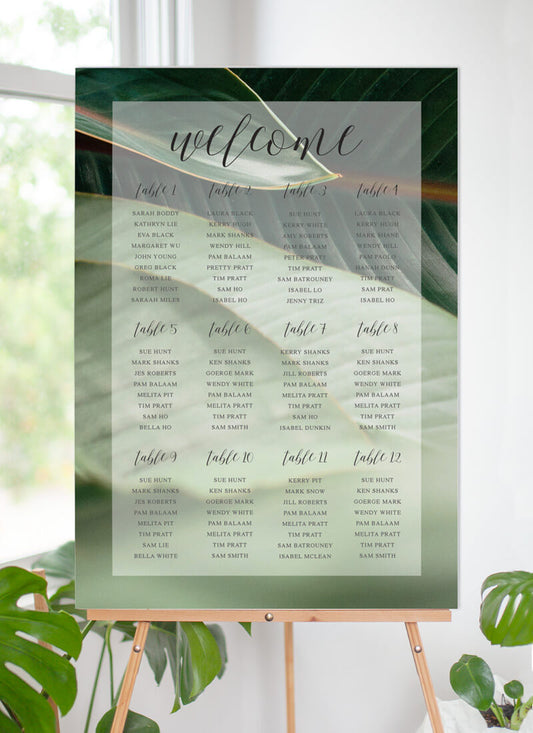 welcome
table 1
SARAH BODDY
KATHRYN LIE
EVA BLACK
MARGARET WU
JOHN YOUNG
GREG BLACK
ROMA LIE
ROBERT HUNT
SARAAH MILES
table 2
LAURA BLACK
KERRY HUGH
MARK SHANKS
WENDY HILL
PAM BALAAM
PRETTY PRATT
TIM PRATT
SAM HO
ISABEL HO
table 3
SUE HUNT
KERRY WHITE
AMY ROBERTS
PAM BALAAM
PETER PRATT
TIM PRATT
SAM BATROUNEY
ISABEL LO
JENNY TRIZ
table 4
LAURA BLACK
KERRY HUGH
MARK SHANE
WENDY HILL
PAM PAOLO
HANAH DUNN
TIM PRATT
SAM PRAT
ISABEL HO
table 5
SUE HUNT
MARK SHANKS
JES ROBERTS
PAM BALAAM
MELITA PIT
TIM PRATT
SAM HO
BELLA HO
table 6
SUE HUNT
KEN SHANKS
GOERGE MARK
WENDY WHITE
PAM BALAAM
MELITA PRATT
TIM PRATT
SAM SMITH
table 7
KERRY SHANKS
MARK SHANKS
JILL ROBERTS
PAM BALAAM
MELITA PRATT
TIM PRATT
SAM HO
ISABEL DUNKIN
table 8
SUE HUNT
KEN SHANKS
GOERGE MARK
WENDY WHITE
PAM BALAAM
MELITA PRATT
TIM PRATT
SAM SMITH
table 9
SUE HUNT
MARK SHANKS
JES ROBERTS
PAM BALAAM
MELITA PIT
TIM PRATT
SAM LIE
BELLA WHITE
table 10
SUE HUNT
KEN SHANKS
GOERGE MARK
WENDY WHITE
PAM BALAAM
MELITA PRATT
TIM PRATT
SAM SMITH
table 11
KERRY PIT
MARK SNOW
JILL ROBERTS
PAM BALAAM
MELITA PRATT
TIM PRATT
SAM BATROUNEY
ISABEL MCLEAN
table 12
SUE HUNT
KEN SHANKS
GOERGE MARK
WENDY WHITE
PAM BALAAM
MELITA PRATT
TIM PRATT
SAM SMITH